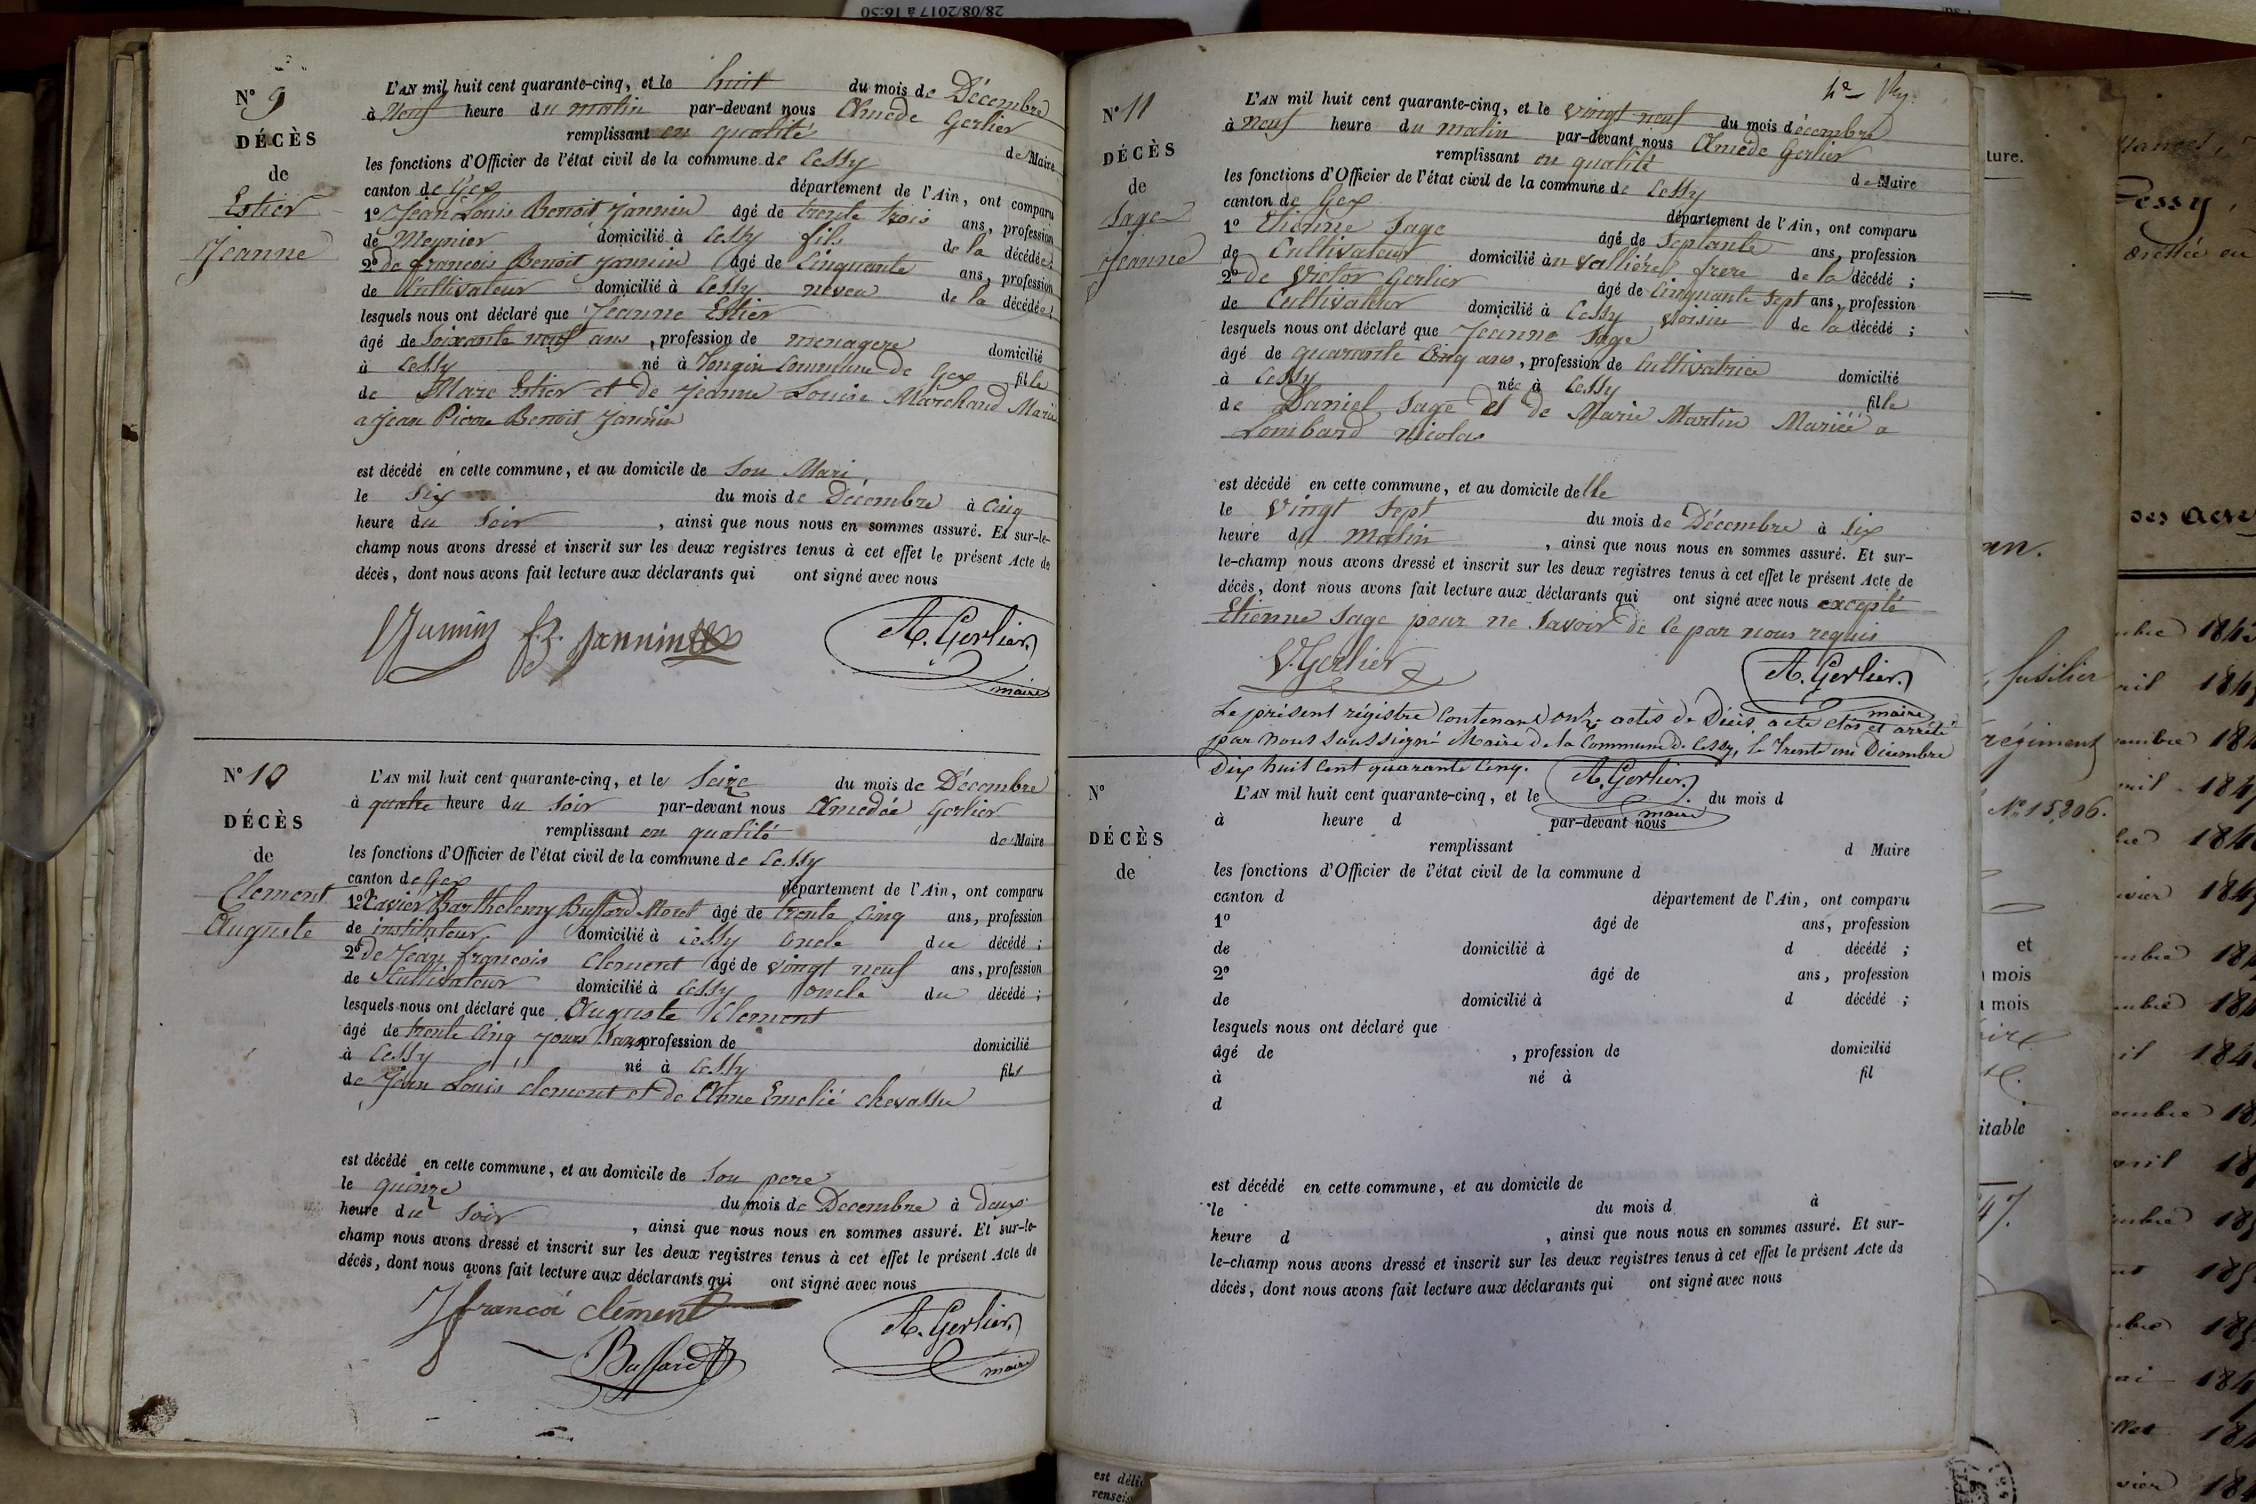 28/08/2017 à 16:50
N° 9
DÉCÈS
de
Estier
Jeanne
L'AN mil huit cent quarante-cinq, et le huit du mois de Décembre
à Neuf heure du matin par-devant nous Amede Gerlier
remplissant en qualité de Maire
les fonctions d'Officier de l'état civil de la commune de Cessy
canton de Gex département de l'Ain, ont comparu
1° Jean Louis Benoit Jannin âgé de trente trois ans, profession
de Meunier domicilié à Cessy fils de la décédée;
2° de francois Benoit Jannin âgé de Cinquante ans, profession
de Cultivateur domicilié à Cessy neveu de la décédée;
lesquels nous ont déclaré que Jeanne Estier
âgé de Soixante neuf ans, profession de menagere domicilié
à Cessy né à Tougin Commune de Gex fille
de Marc Estier et de Jeanne Louise Marchand Marié
a Jean Pierre Benoit Jannin
est décédé en cette commune, et au domicile de Son Mari
le Six du mois de Décembre à Cinq
heure du Soir, ainsi que nous nous en sommes assuré. Et sur-le-
champ nous avons dressé et inscrit sur les deux registres tenus à cet effet le présent Acte de
décès, dont nous avons fait lecture aux déclarants qui ont signé avec nous
Jannin f. B. Jannin A. Gerlier
maire
N° 10
DÉCÈS
de
Clement
Auguste
L'AN mil huit cent quarante-cinq, et le Seize du mois de Décembre
à quatre heure du Soir par-devant nous Amedée Gerlier
remplissant en qualité de Maire
les fonctions d'Officier de l'état civil de la commune de Cessy
canton de Gex département de l'Ain, ont comparu
1° Xavier Barthelemy Buffard Moret âgé de trente Cinq ans, profession
de instituteur domicilié à Cessy oncle du décédé;
2° de Jean francois Clement âgé de vingt neuf ans, profession
de Cultivateur domicilié à Cessy oncle du décédé;
lesquels nous ont déclaré que Auguste Clement
âgé de trente Cinq jours Sans profession de domicilié
à Cessy né à Cessy fils
de Jean Louis Clement et de Anne Emelié Chevassu
est décédé en cette commune, et au domicile de Son pere
le quinze du mois de Decembre à Deux
heure du Soir, ainsi que nous nous en sommes assuré. Et sur-le-
champ nous avons dressé et inscrit sur les deux registres tenus à cet effet le présent Acte de
décès, dont nous avons fait lecture aux déclarants qui ont signé avec nous
J francoi clément
Buffard A. Gerlier
maire
N° 11
DÉCÈS
de
Sage
Jeanne
L'AN mil huit cent quarante-cinq, et le vingt neuf du mois décembre
à neuf heure du matin par-devant nous Amede Gerlier
remplissant en qualité de Maire
les fonctions d'Officier de l'état civil de la commune de Cessy
canton de Gex département de l'Ain, ont comparu
1° Etienne Sage âgé de Septante ans, profession
de Cultivateur domicilié à frere de la décédé;
2° de Victor Gerlier âgé de Cinquante Sept ans, profession
de Cultivateur domicilié à Cessy voisin de la décédé;
lesquels nous ont déclaré que Jeanne Sage
âgé de quarante Cinq ans, profession de Cultivatrice domicilié
à Cessy née à Cessy fille
de Daniel Sage et de Marie Martin Mariéé a
Lombard nicolas
est décédé en cette commune, et au domicile delle
le Vingt Sept du mois de Décembre à Six
heure du matin, ainsi que nous nous en sommes assuré. Et sur-
le-champ nous avons dressé et inscrit sur les deux registres tenus à cet effet le présent Acte de
décès, dont nous avons fait lecture aux déclarants qui ont signé avec nous excepté
Etienne Sage pour ne Savoir de ce par nous requis
V. Gerlier A. Gerlier
maire
Le présent régistre Contenant onze actes de Décès, a été clos et arrêté
par nous Soussigné Maire de la Commune de Cessy, le Trente un Décembre
Dix huit Cent quarante Cinq. A. Gerlier
maire
N°
DÉCÈS
de
L'AN mil huit cent quarante-cinq, et le du mois d
à heure d par-devant nous
remplissant d Maire
les fonctions d'Officier de l'état civil de la commune d
canton d département de l'Ain, ont comparu
1° âgé de ans, profession
de domicilié à d décédé;
2° âgé de ans, profession
de domicilié à d décédé;
lesquels nous ont déclaré que
âgé de , profession de domicilié
à né à fil
d
est décédé en cette commune, et au domicile de
le du mois d à
heure d , ainsi que nous nous en sommes assuré. Et sur-
le-champ nous avons dressé et inscrit sur les deux registres tenus à cet effet le présent Acte de
décès, dont nous avons fait lecture aux déclarants qui ont signé avec nous
ture.
an.
fusilier
régiment
N° 15,206.
et
mois
mois
itable
47.
Cessy,
des actes
est déliv
renseig